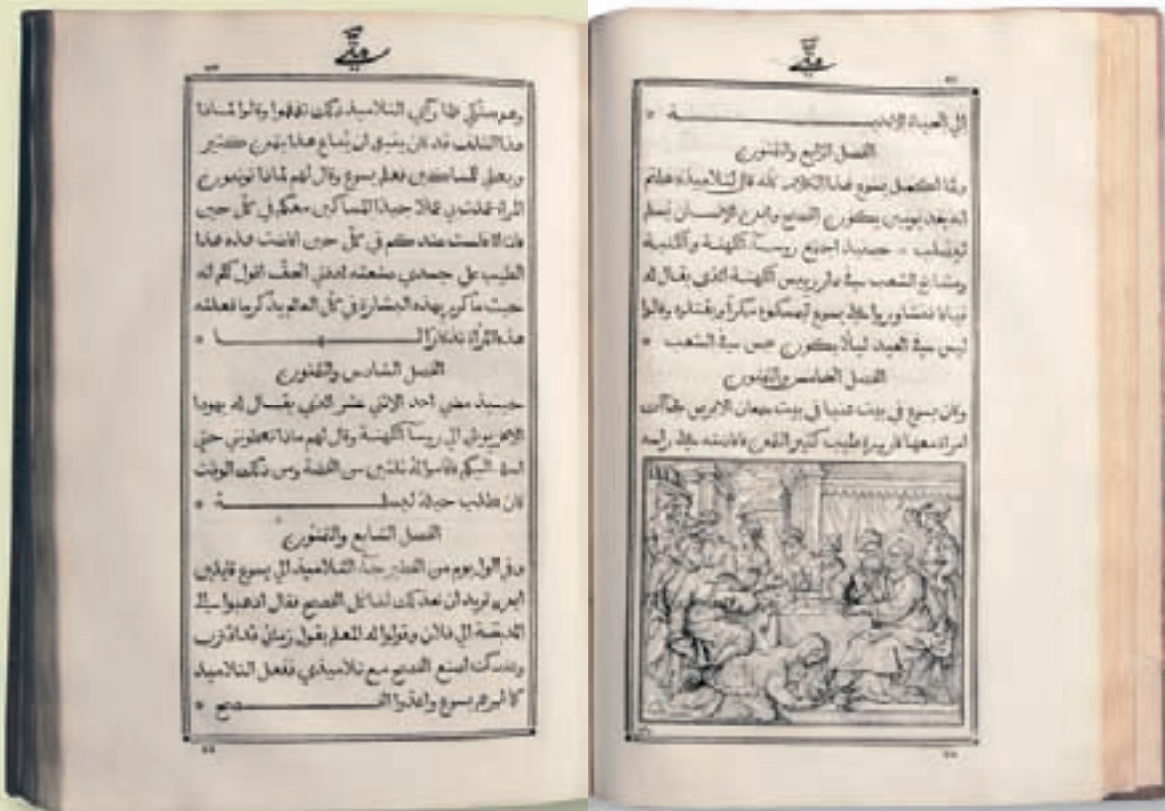 متّي
الي الحياة الابدية *
الفصل الرابع والثمنون
ولمّا اكمل يسوع هذا الكلام كله قال لتلاميذه علمتم
انه بعد يومين يكون الفصح وابن الانسان يُسلم
ليصلب * حينيذ اجتمع روسآ الكهنة والكتبة
ومشايخ الشعب في دار رييس الكهنة الذي يقال له
قيافا فتشاوروا علي يسوع ليمسكوه مكراً ويقتلوه وقالوا
ليس في العيد ليلًا يكون سجس في الشعب *
الفصل الخامس والثمنون
وكان يسوع في بيت عنيا في بيت سمعان الابرص فجآت
امراة معها قارورة طيب كثير الثمن فافاضته علي راسه
متّي
وهو متكي فلما رآي التلاميذ ذلك تقمقموا وقالوا لماذا
هذا التلف قد كان ينبغي ان يُباع هذا بثمن كثير
ويعطي للمساكين فعلم يسوع وقال لهم لماذا توذون
المراة عملت بي عملا جيدًا المساكين معكم في كلّ حين
فاما انا فلست عندكم في كلّ حين افاضت هذه هذا
الطيب علي جسدي صنعته لدفني الحقّ اقول لكم انه
حيث ما كرز بهذه البشارة في كلّ العالم يذكر ما فعلته
هذه المرأة تذكارًا لها *
الفصل السادس والثمنون
حينيذ مضي احد الاثني عشر الذي يقال له يهودا
الاسخريوطي الي روسآ الكهنة وقال لهم ماذا تعطوني حتي
اسلمه اليكم فاقاموا له ثلثين من الفضة ومن ذلك الوقت
كان يطلب حيلة ليسلمه *
الفصل السابع والثمنون
وفي اول يوم من الفطير جآ التلاميذ الي يسوع قايلين
اين تريد ان نعد لك لتاكل الفصح فقال اذهبوا الي
المدينة الي فلان وقولوا له المعلم يقول زماني قد اقترب
وعندك اصنع الفصح مع تلاميذي ففعل التلاميذ
كما امرهم يسوع واعدّوا الفصح *